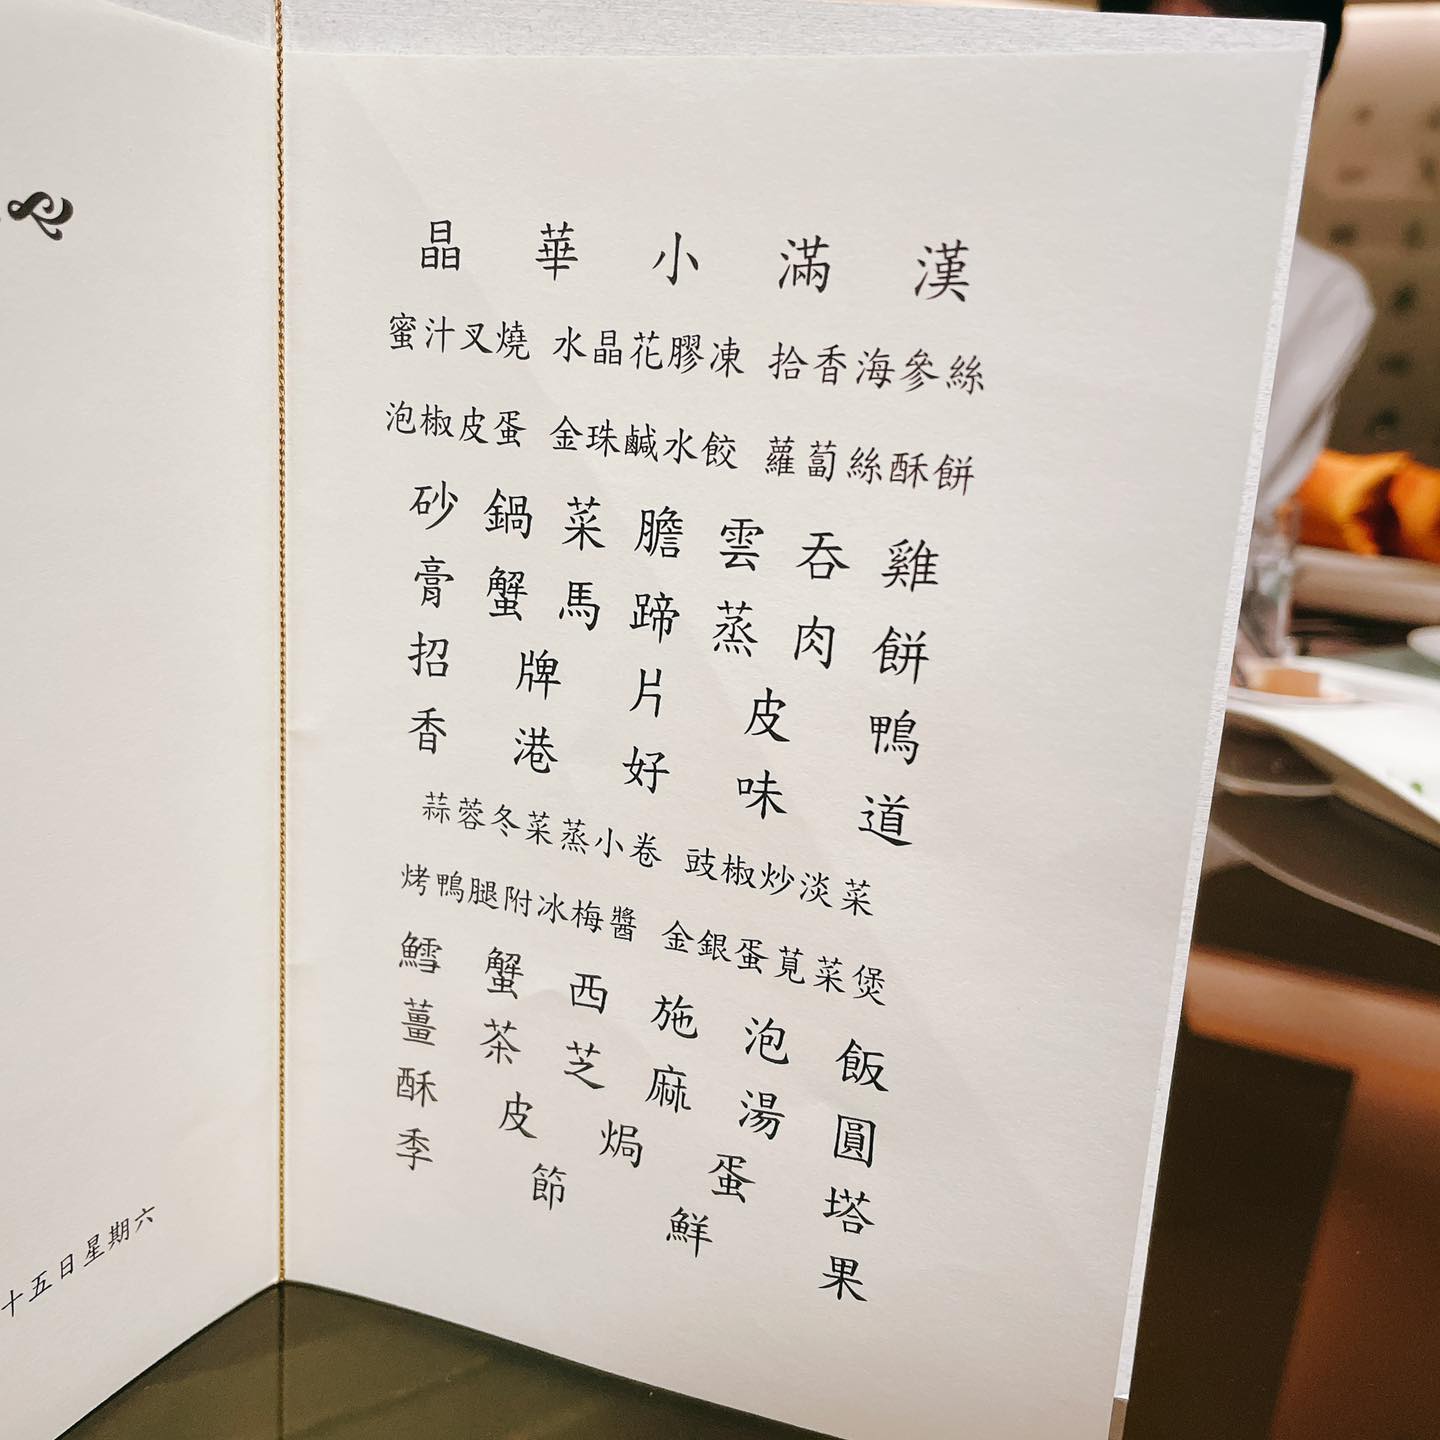 十五日星期六
晶華小滿漢
蜜汁叉燒 水晶花膠凍 拾香海參絲
泡椒皮蛋 金珠鹹水餃 蘿蔔絲酥餅
砂鍋菜膽雲吞雞
膏蟹馬蹄蒸肉餅
招牌片皮鴨
香港好味道
蒜蓉冬菜蒸小卷 豉椒炒淡菜
烤鴨腿附冰梅醬 金銀蛋莧菜煲
鱈蟹西施泡飯
薑茶芝麻湯圓
酥皮焗蛋塔
季節鮮果